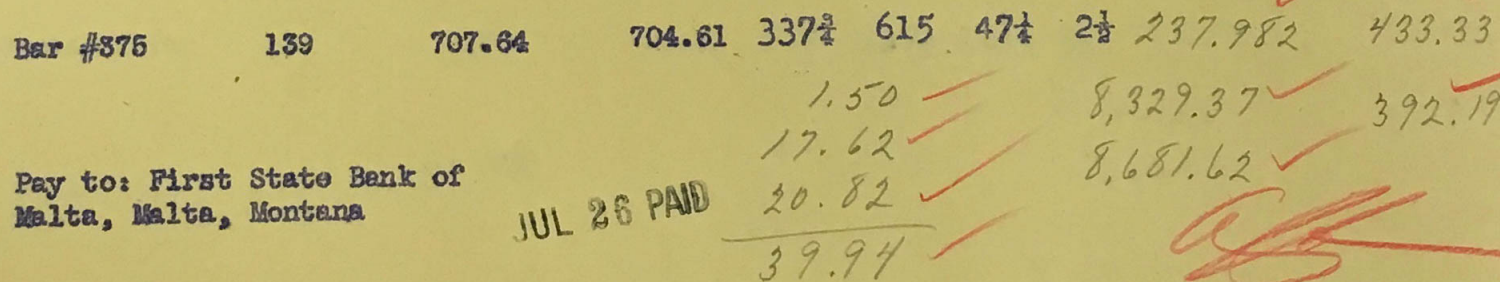 Bar #375 139 707.64 704.61 337¾ 615 47¼ 2½ 237.982 433.33
1.50 8,329.37 392.19
17.62 8,681.62
Pay to: First State Bank of
Malta, Malta, Montana
JUL 26 PAID 20.82
39.94